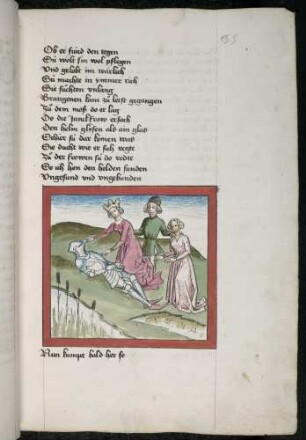 Ob er fund den tegen
Su wolt sin wol pflegen
Und gelebt im wärlich
Su machte in ymmer rich
Sie suchten unlang
Brangenen kam zu letst gegangen
Zu dem moß do er lag
Do die junckfrow ersach
Den helm glissen als ain glas
Schier su dar komen was
Sie ducht wie er sich regte
Zu der frowen su do redte
So ich han den helden funden
Ungesund und ungebunden
Nun kumpt bald her so